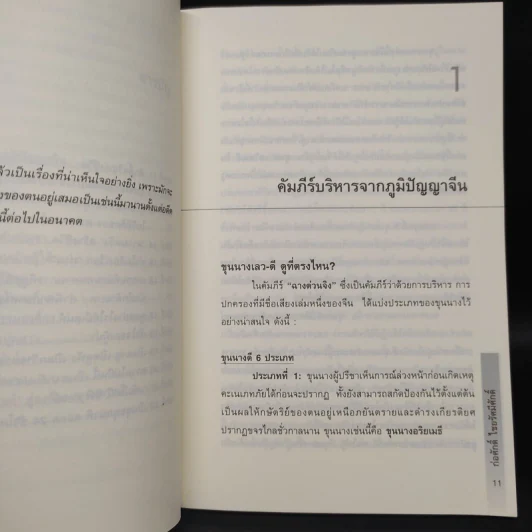 ล้วเป็นเรื่องที่น่าเห็นใจอย่างยิ่ง เพราะมักจะ
งของตนอยู่เสมอเป็นเช่นนี้มานานตั้งแต่อดีต
นี้ต่อไปในอนาคต
1
คัมภีร์บริหารจากภูมิปัญญาจีน
ขุนนางเลว-ดี ดูที่ตรงไหน?
ในคัมภีร์ “ฉางต่วนจิง” ซึ่งเป็นคัมภีร์ว่าด้วยการบริหาร การ
ปกครองที่มีชื่อเสียงเล่มหนึ่งของจีน ได้แบ่งประเภทของขุนนางไว้
อย่างน่าสนใจ ดังนี้ :
ขุนนางดี 6 ประเภท
ประเภทที่ 1: ขุนนางผู้ปรีชาเห็นการณ์ล่วงหน้าก่อนเกิดเหตุ
คะเนเภทภัยได้ก่อนจะปรากฏ ทั้งยังสามารถสกัดป้องกันไว้ตั้งแต่ต้น
เป็นผลให้กษัตริย์ของตนอยู่เหนือภยันตรายและดำรงเกียรติยศ
ปรากฏขจรไกลชั่วกาลนาน ขุนนางเช่นนี้คือ ขุนนางอริยเมธี
ก่อศักดิ์ ไชยรัศมีศักดิ์
11